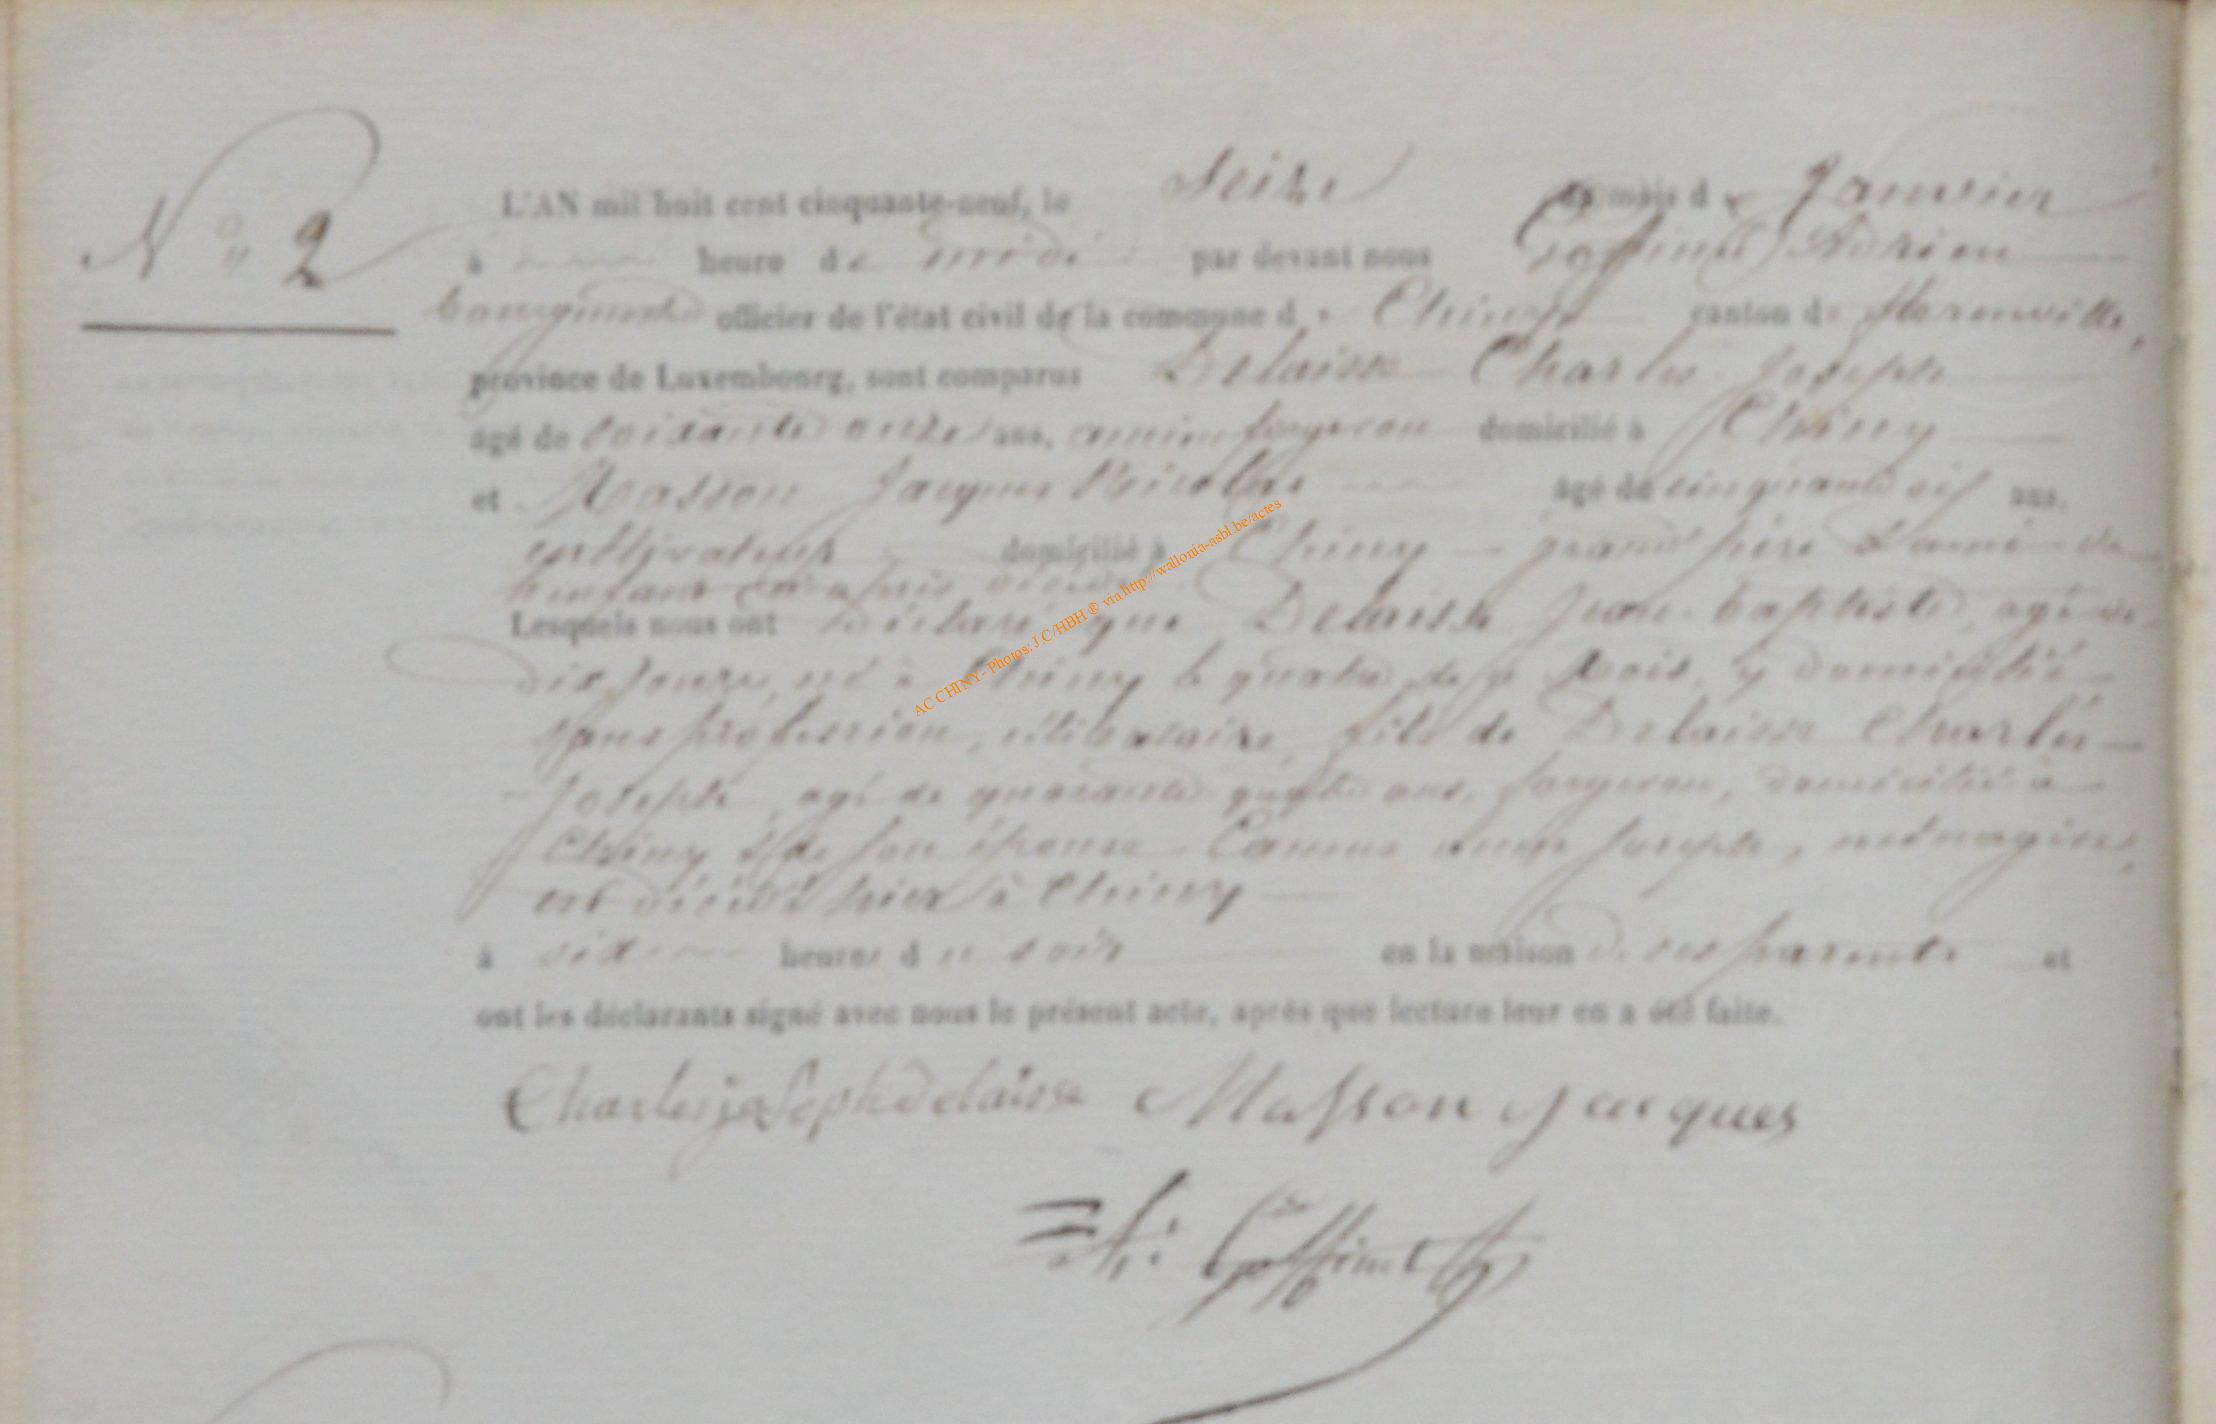 N° 2
L'AN mil huit cent cinquante-neuf, le seize du mois de Janvier
à heure de midi par devant nous Goffinet Adrien
bourgmestre officier de l'état civil de la commune de Chiny canton de florenville,
province de Luxembourg, sont comparus Delaisse Charles Joseph
âgé de soixante onze ans, ancien forgeron domicilié à Chiny
et Masson Jacques Nicolas âgé de cinquante six ans.
cultivateur domicilié à Chiny – grand père & ami de
l'enfant ci après
Lesquels nous ont déclaré que Delaisse Jean-baptiste, agé de
dix jours, né à Chiny le quatre de ce Mois, y domicilié
sans profession, célibataire, fils de Delaisse Charles
Joseph, agé de quarante quatre ans, forgeron, domicilié à
Chiny & de son épouse Camus Joseph, ménagère,
est décédé hier à Chiny
à six heures du soir en la maison de ses parents et
ont les déclarants signé avec nous le présent acte, après que lecture leur en a été faite.
Charles joseph delaisse Masson Jacques
A: Goffinet
AC CHINY - Photos: J.C/HBH ® via http://wallonia-asbl.be/actes